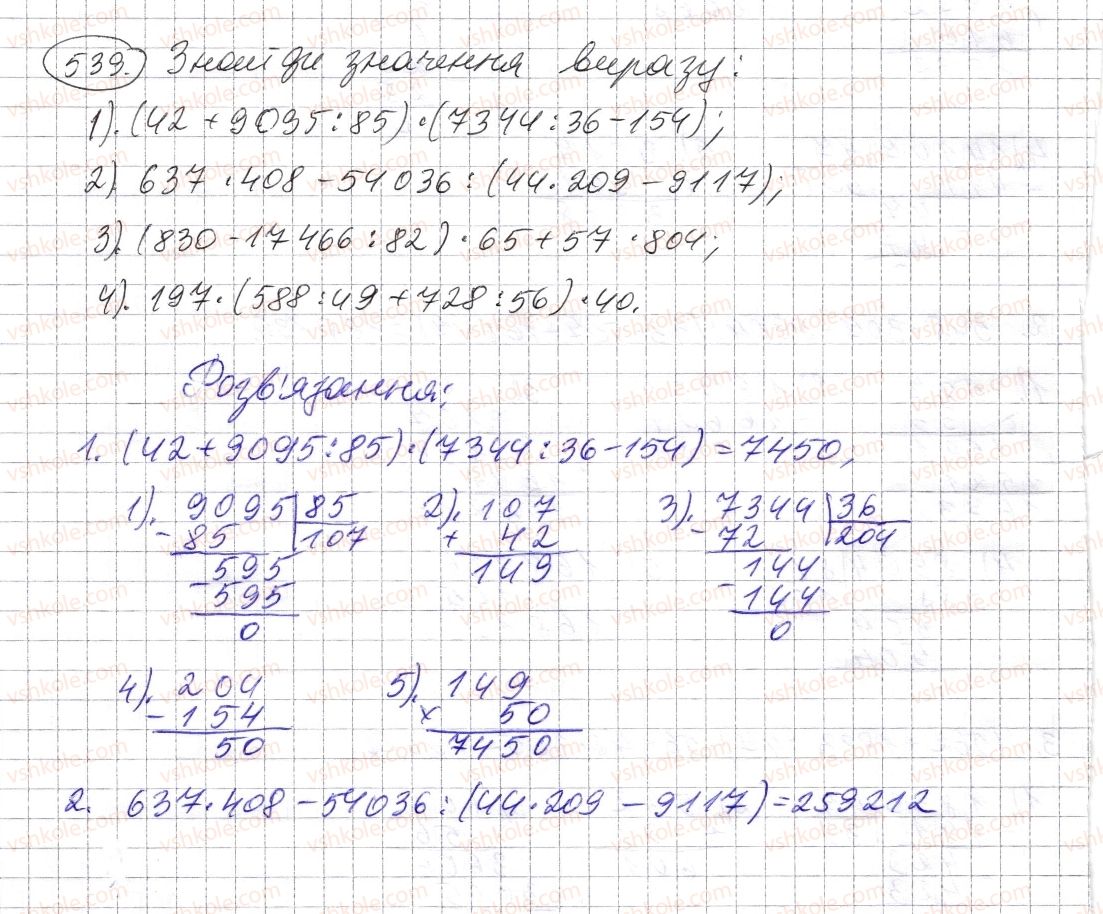 539. Знайди значення виразу:
1). (42 + 9095 : 85) · (7344 : 36 - 154);
2). 637 · 408 - 54036 : (44 · 209 - 9117);
3). (830 - 17466 : 82) · 65 + 57 · 804;
4). 197 · (588 : 49 + 728 : 56) · 40.
Розв'язання:
1. (42 + 9095 : 85) · (7344 : 36 - 154) = 7450,
1). 9095 85 2). 107 3). 7344 36
- 85 107 + 42 - 72 204
595 149 144
- 595 - 144
0 0
4). 204 5). 149
- 154 × 50
50 7450
2. 637 · 408 - 54036 : (44 · 209 - 9117) = 259212